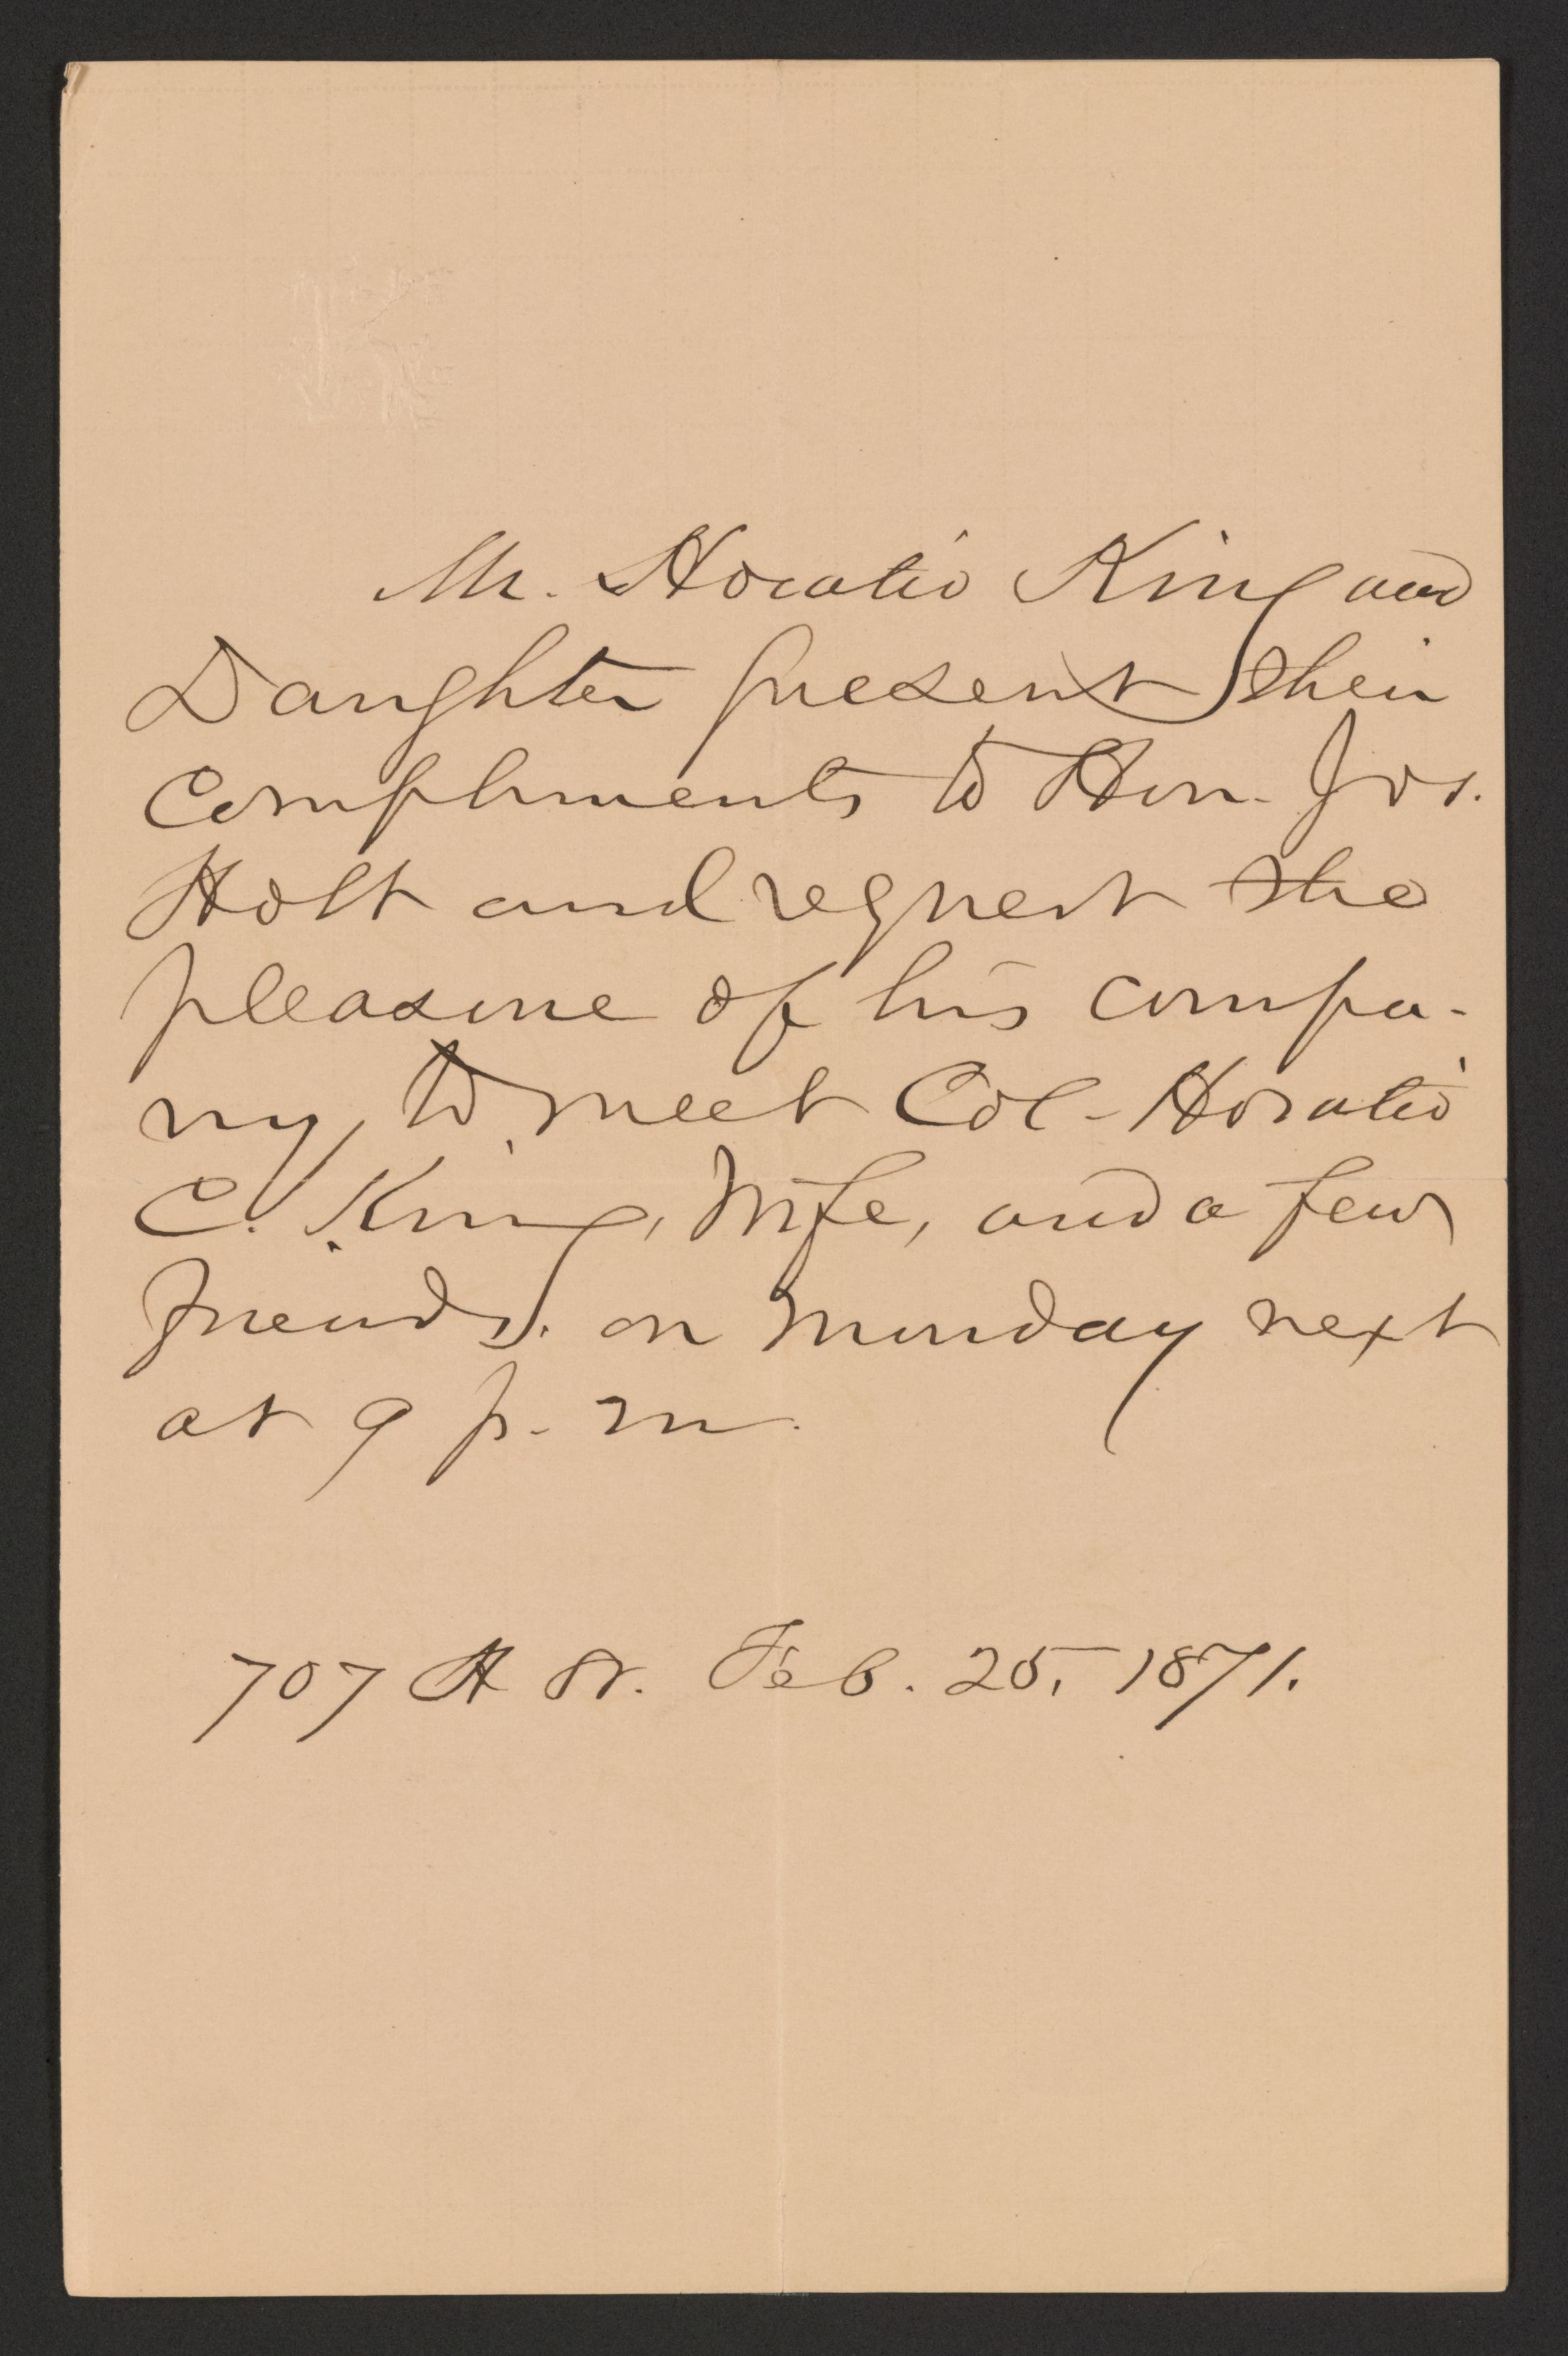 Mr. Horatio King and
Daughter present their
Compliments to Hon. Jos.
Holt and request the
pleasure of his compa-
ny, to meet Col. Horatio
C. King, Wife, and a few
friends, on Monday next
at 9 p. m.
707 H St. Feb. 25, 1871.